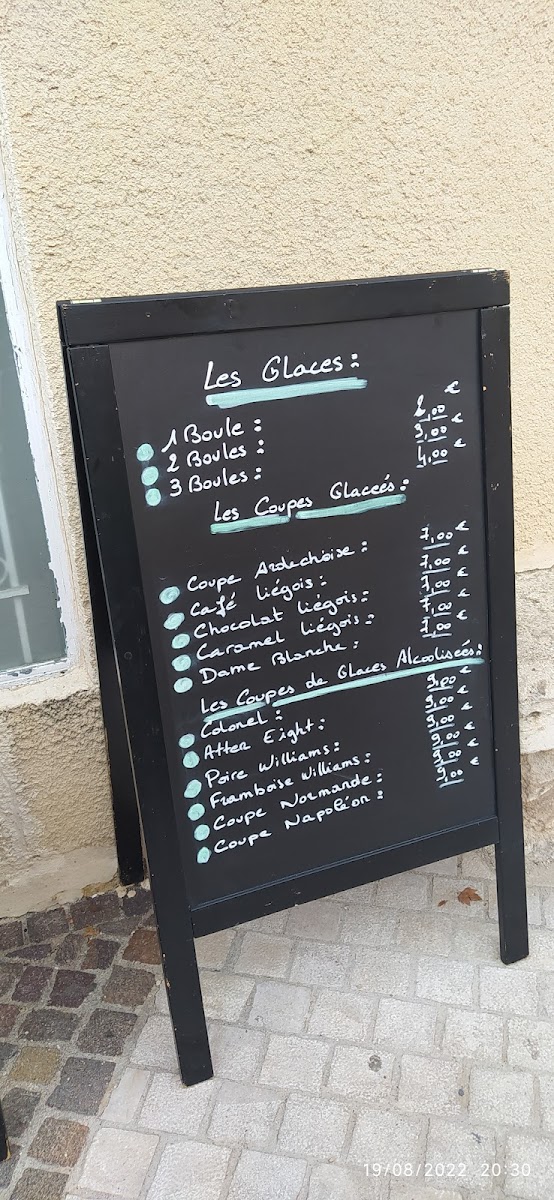 Les Glaces :
€
1 Boule : 2,00 €
2 Boules : 3,00 €
3 Boules : 4,00
Les Coupes Glaceés :
Coupe Ardechoise : 7,00 €
Café liégois : 7,00 €
Chocolat liégois : 7,00 €
Caramel liégois : 7,00 €
Dame Blanche : 7,00 €
Les Coupes de Glaces Alcooliseés :
Colonel : 9,00 €
Atter Eight : 9,00 €
Poire Williams : 9,00 €
Framboise Williams : 9,00 €
Coupe Normande : 9,00 €
Coupe Napoléon :
19/08/2022 20:30